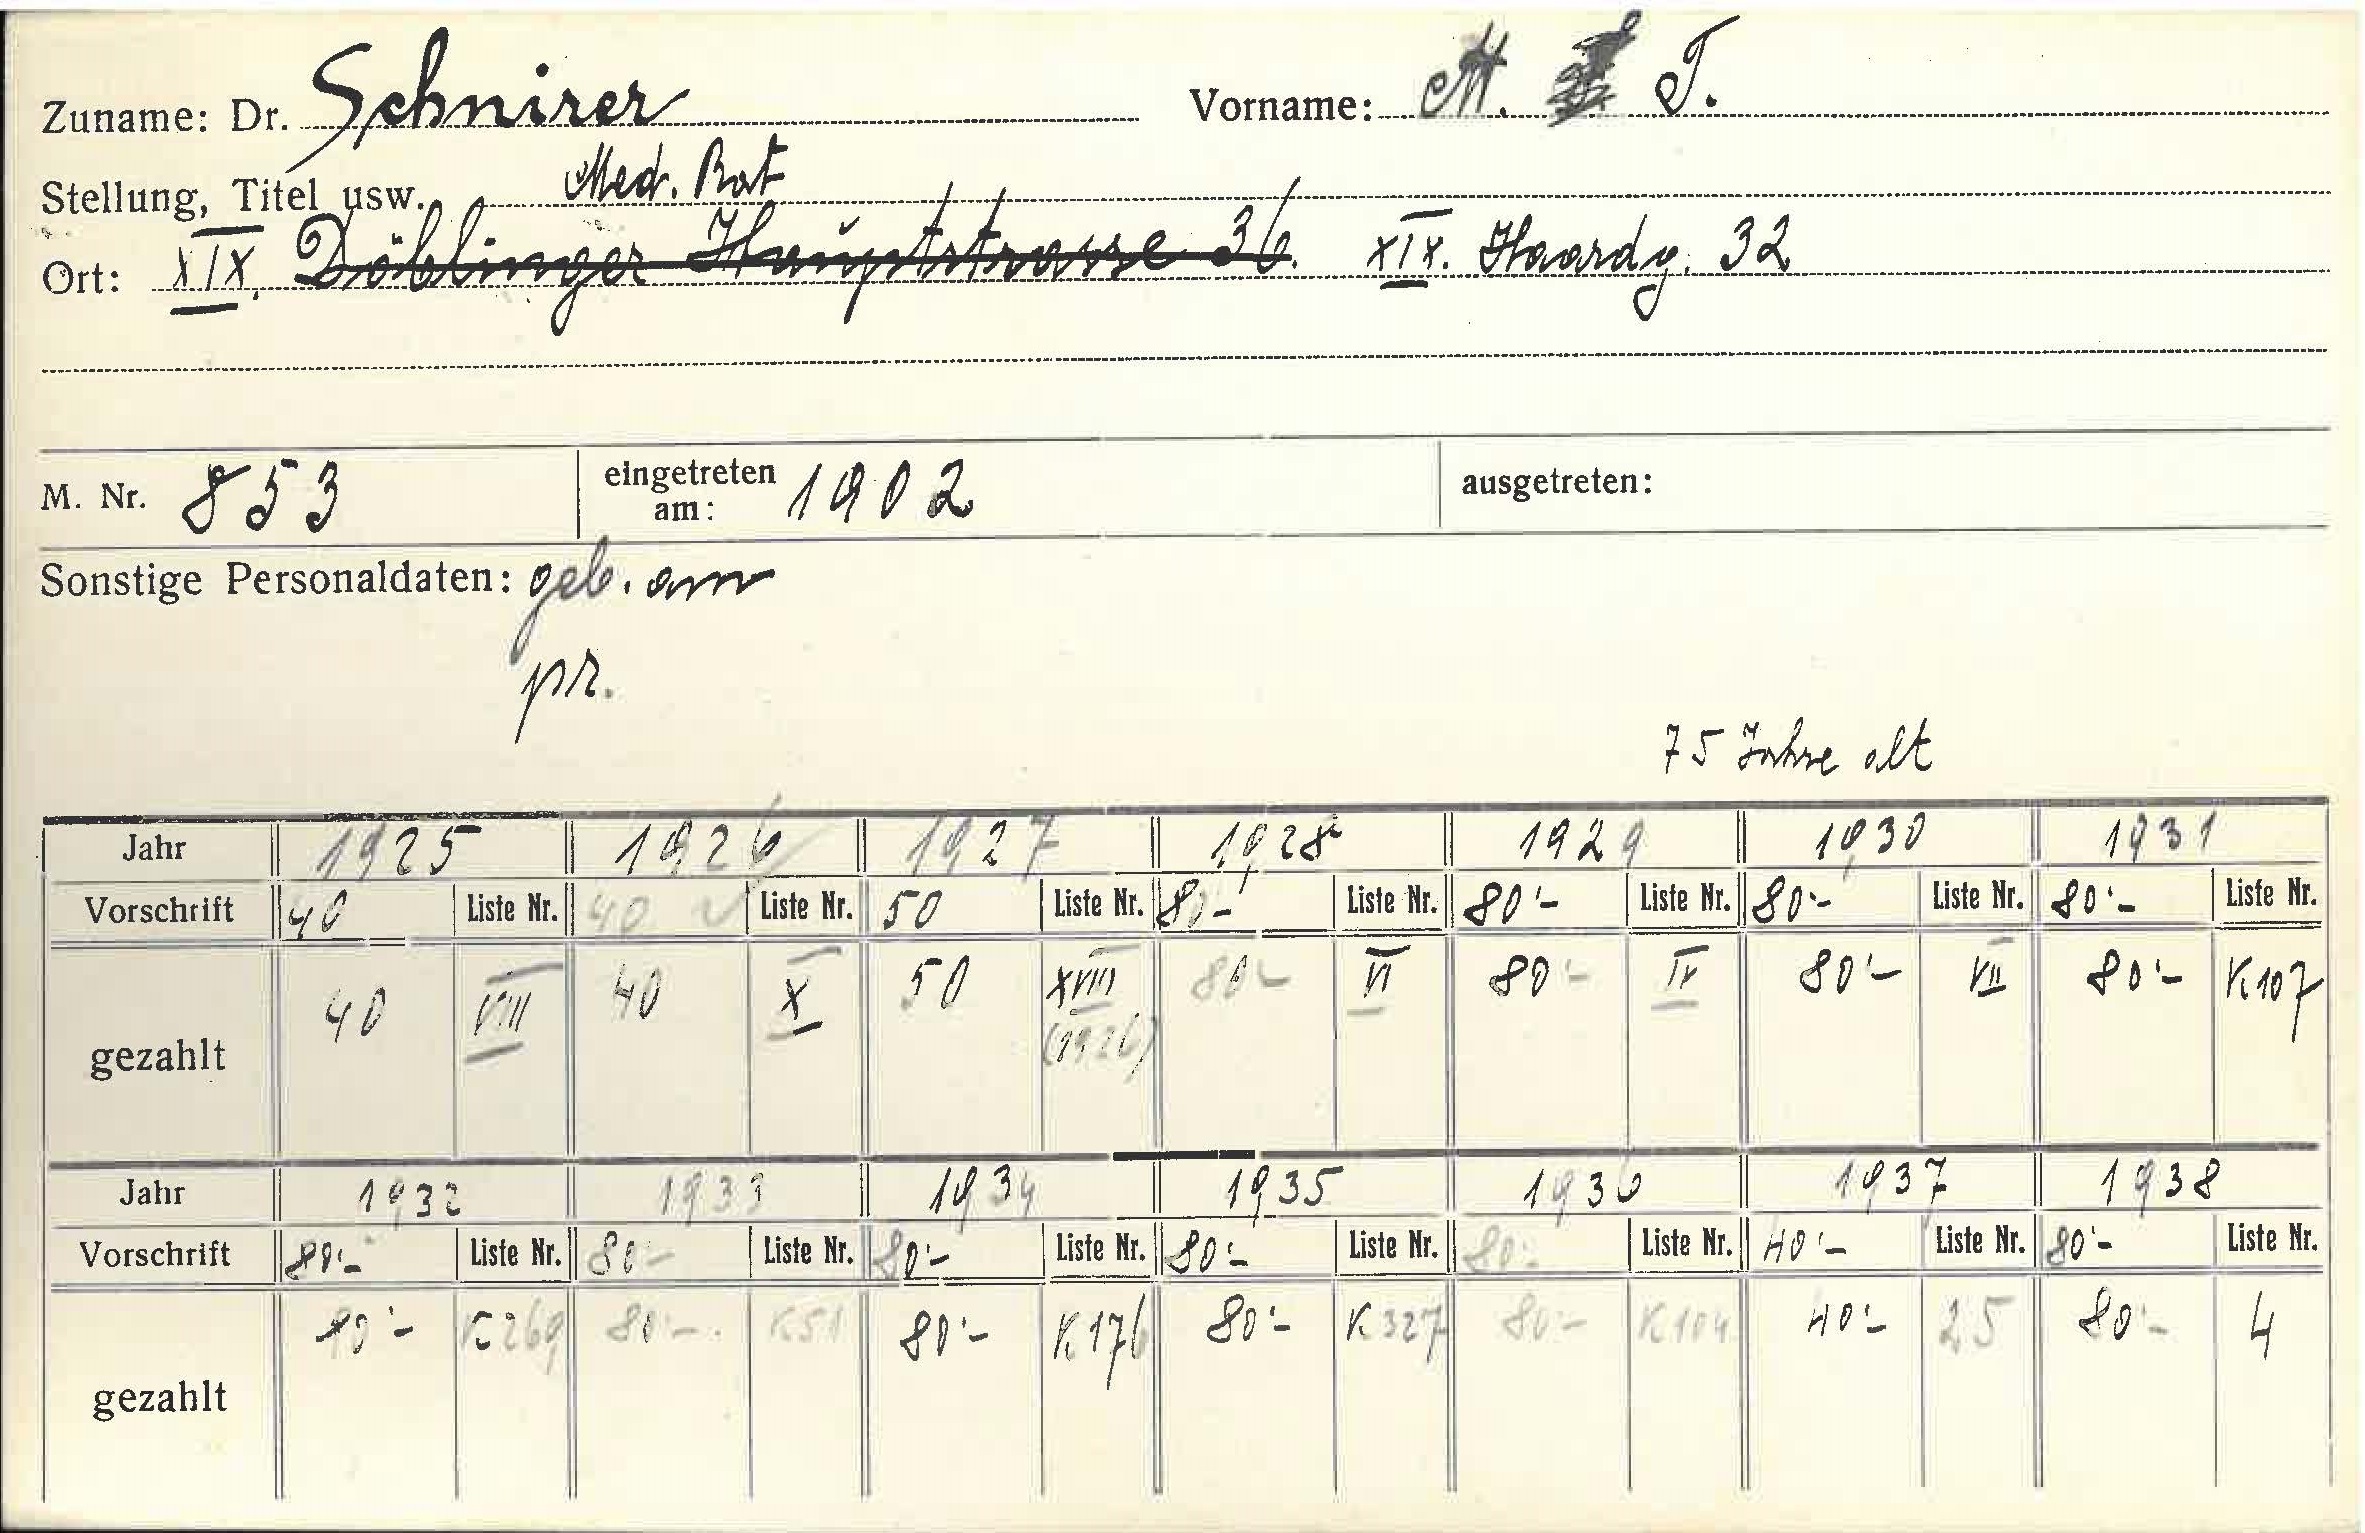 Zuname: Dr. Schnirer Vorname: M. T.
Stellung, Titel usw. Med. Rat
Ort: XIX. Döblinger Hauptstrasse 36. XIX. Haardg. 32
M. Nr. 853 eingetreten am: 1902 ausgetreten:
Sonstige Personaldaten: geb. am
pr.
75 Jahre alt
Jahr 1925 1926 1927 1928 1929 1930 1931
Vorschrift 40 Liste Nr. 40 Liste Nr. 50 Liste Nr. 80- Liste Nr. 80'- Liste Nr. 80'- Liste Nr. 80'- Liste Nr.
gezahlt 40 VIII 40 X 50 XVIII (1926) 80'- VI 80'- IV 80'- VII 80'- K107
Jahr 1932 1933 1934 1935 1936 1937 1938
Vorschrift 80'- Liste Nr. 80- Liste Nr. 80'- Liste Nr. 80'- Liste Nr. 80'- Liste Nr. 40'- Liste Nr. 80'- Liste Nr.
gezahlt 80'- K269 80'-. K51 80'- K176 80'- K327 80'- K104 40'- 25 80'- 4